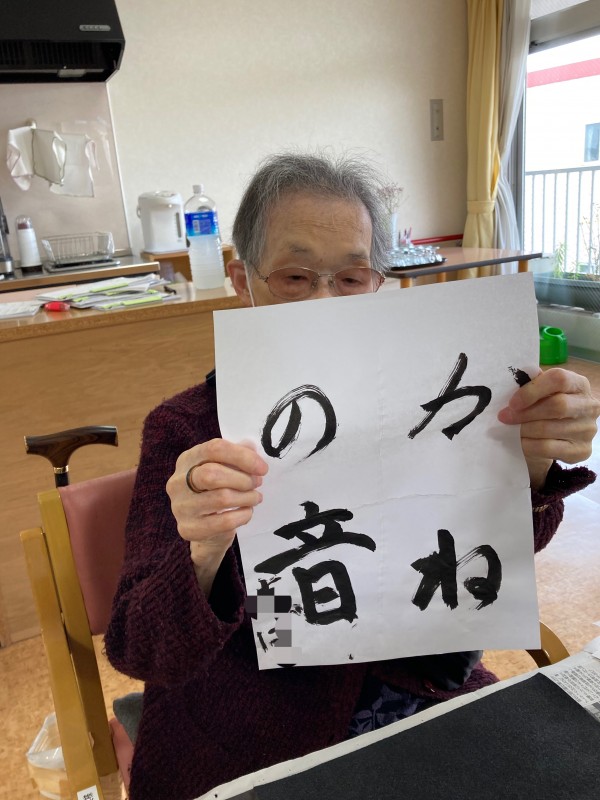 かね
の音